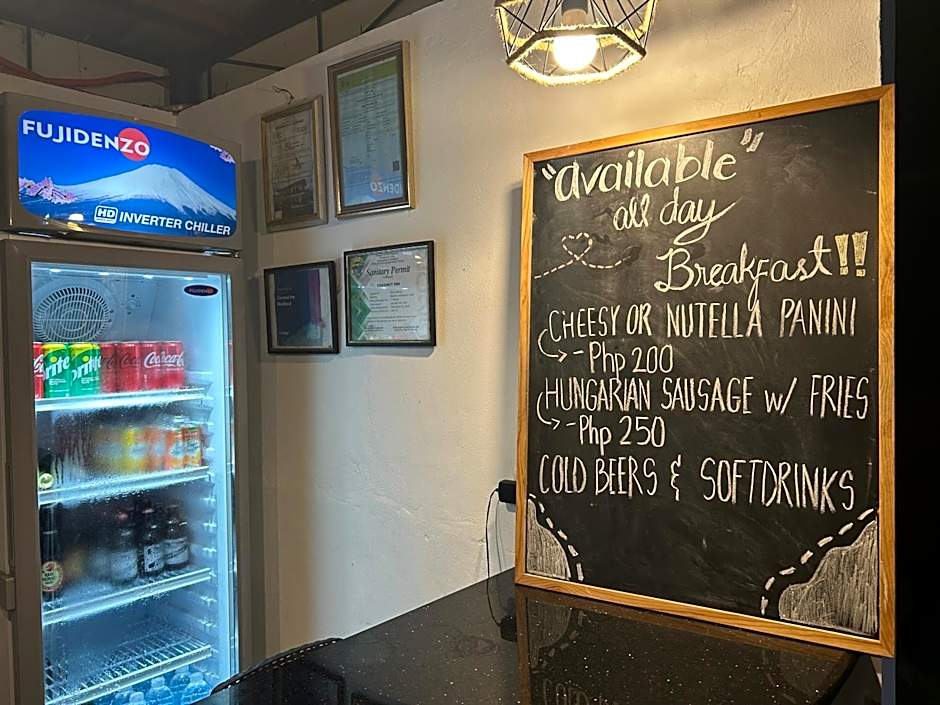 FUJIDENZO
HD INVERTER CHILLER
FUJIDENZO
rite
prite
Coca-Cola
Sanitary Permit
"available"
all day
Breakfast!!
CHEESY OR NUTELLA PANINI
- Php 200
HUNGARIAN SAUSAGE W/ FRIES
- Php 250
COLD BEERS & SOFTDRINKS